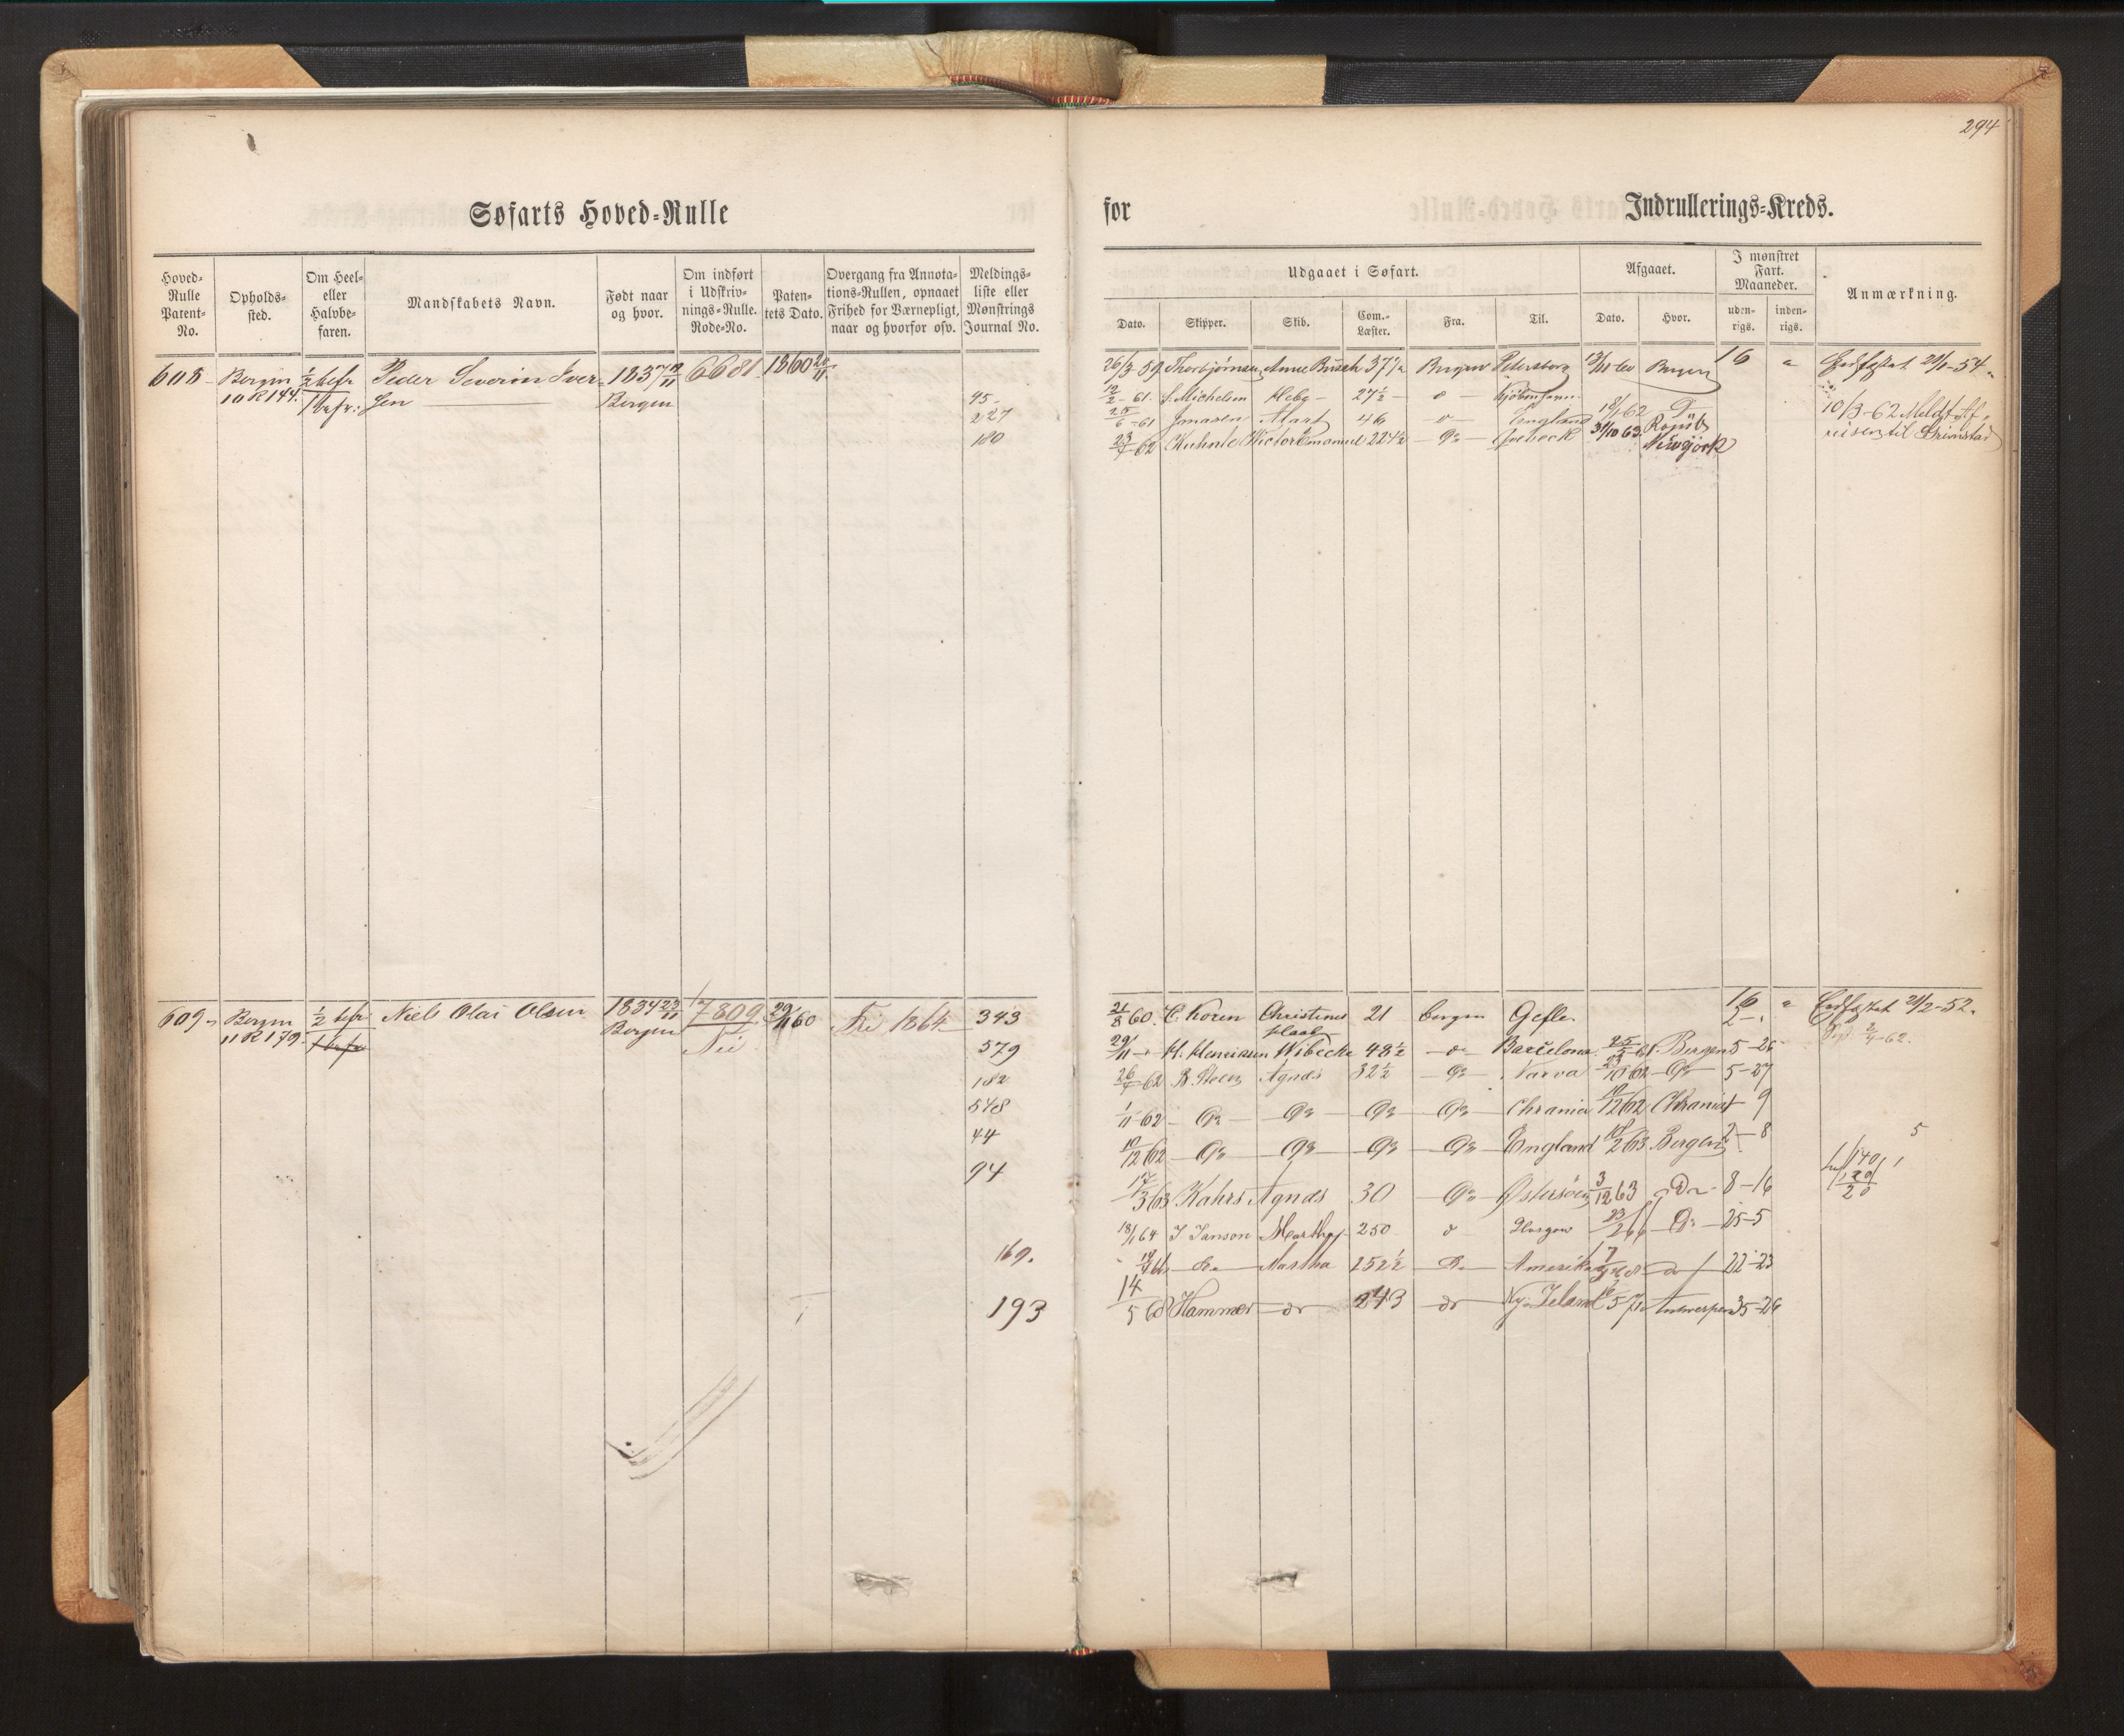 294
Søfarts Hoved-Rulle
for
Indrullerings-Kreds.
Hoved-
Rulle
Patent-
No.
Opholds-
sted.
Om Heel-
eller
Halvbe-
faren.
Mandskabets Navn.
Født naar
og hvor.
Om indført
i Udskriv-
nings-Rulle.
Rode-No.
Paten-
tets Dato.
Overgang fra Annota-
tions-Rullen, opnaaet
Frihed for Værnepligt,
naar og hvorfor osv.
Meldings-
liste eller
Mønstrings
Journal No.
Udgaaet i Søfart.
Dato.
Skipper.
Skib.
Com.-
Læster.
Fra.
Til.
Afgaaet.
Dato.
Hvor.
I mønstret
Fart.
Maaneder.
uden-
rigs.
inden-
rigs.
Anmærkning.
608 Bergen ½ befr Peder Severin Iver- 1837 6681 1860
10 R 144. 1 befr: sen Bergen
26/3 59 Thorbjörnsen Anne Busch 37½ Bergen Petersborg Bergen 16 " Indfæstet 21/1-54
95 12/2-61 Michelsen Hebe 27½ Kjöbenhavn
227 25/6-61 Jonasen 46 England 18/1 62 10/3-62 Meldt Af-
180 23/7 62 Kuhnle Wictor Emanuel 224½ Do Qvebeck 31/10 63 Newyörk reisen til Grimstad
609 Bergen ½ befr Niels Olai Olsen 1834 23/11 7809 29/11 60 Fri 1864 343
11 R 179 Bergen
21/8 60 C. Koren Christines 21 Bergen Gefle 16 " Indfæstet 21/2-52.
Haab
579 29/11 H. Henriksen Wibecke 48½ Do Barcelona 61 Bergen 5-26
182 26/4 62 B. Steen Agnes 32½ Do Narva 62 Do 5-27
548 1/11 62 Do Do Do Do Chrania 10/12 62 Chrania 9
44 10/12 62 Do Do Do Do England 18/2 63 Bergen 2-8
5
94 17/3 63 Kahrs Agnes 30 Do Østersöen 3/12 63 Do 8-16
18/1 64 J Janson Martha 250 Do Glasgow 23/2 66 Do 25-5
169. Do Martha 252½ Do Amerika do 22-23
193 14/5 68 Hammer do 243 do Ny Zeland Antwerpen 35-26